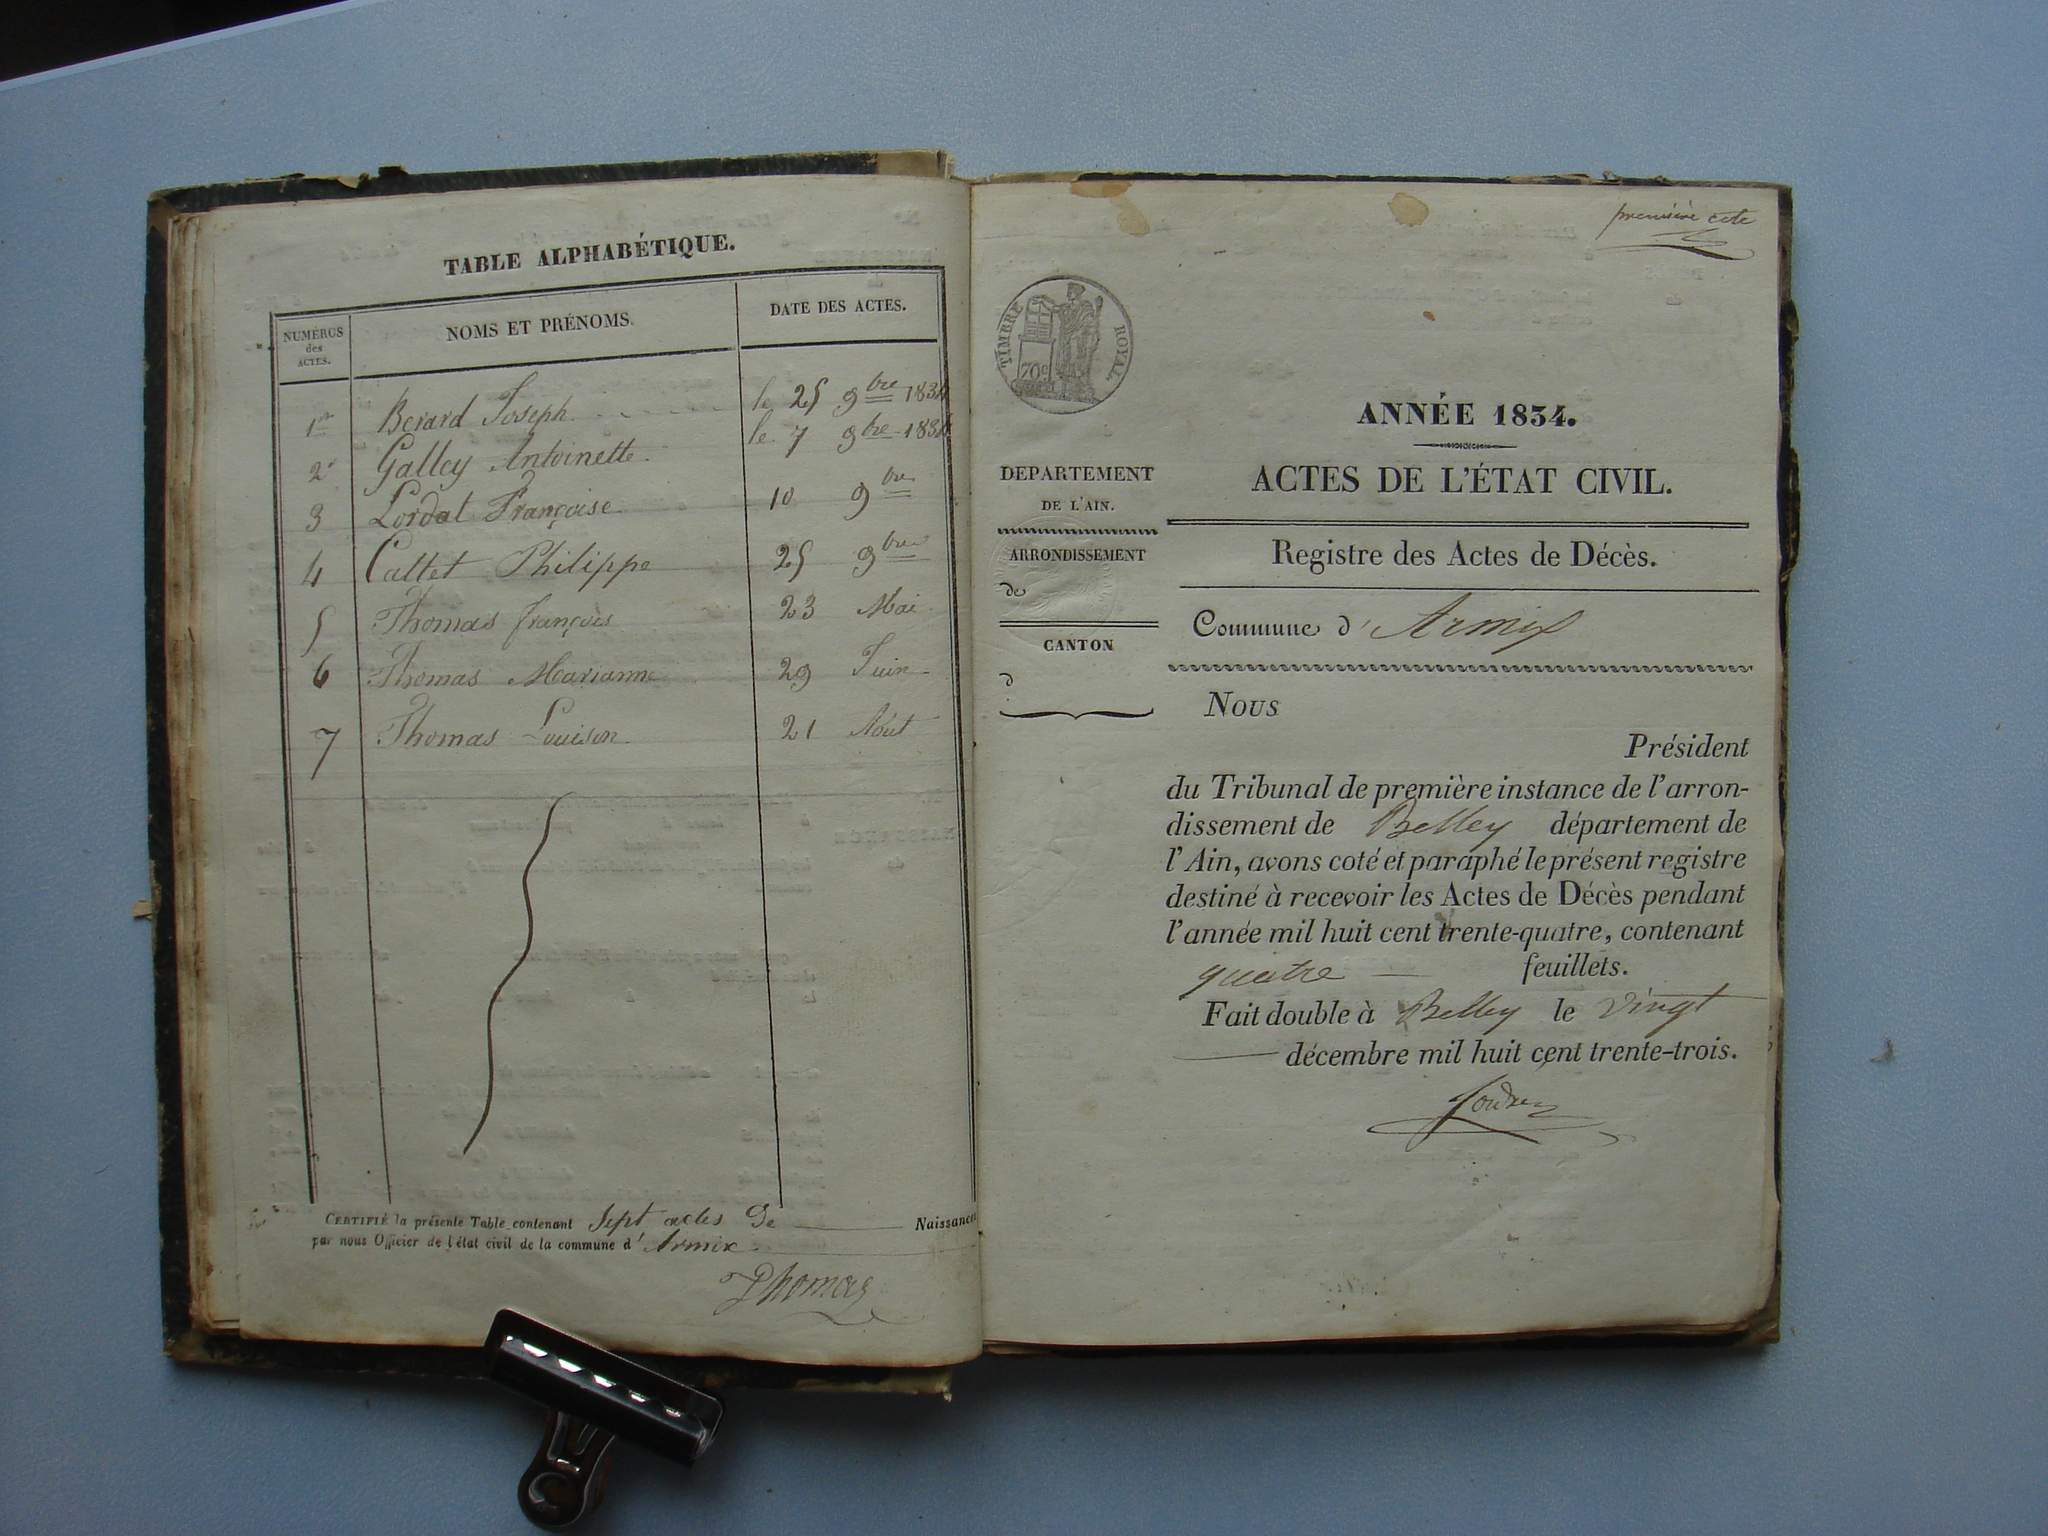 TABLE ALPHABÉTIQUE.
NUMÉROS
des
ACTES.
NOMS ET PRÉNOMS.
DATE DES ACTES.
1er Berard Joseph le 25 9bre 1834
2e Galley Antoinette le 7 9bre 1834
3 Lordat Françoise 10 9bre
4 Callet Philippe 25 9bre
5 Thomas françois 23 Mai
6 Thomas Marianne 29 Juin
7 Thomas Louison 21 Aout
CERTIFIÉ la présente Table contenant Sept actes De Naissances
par nous Officier de l'état civil de la commune d' Armix
Thomas
première cote
TIMBRE ROYAL.
70c
DEPARTEMENT
DE L'AIN.
ARRONDISSEMENT
de
CANTON
d
ANNÉE 1834.
ACTES DE L'ÉTAT CIVIL.
Registre des Actes de Décès.
Commune d' Armix
Nous
Président
du Tribunal de première instance de l'arron-
dissement de Belley département de
l'Ain, avons coté et paraphé le présent registre
destiné à recevoir les Actes de Décès pendant
l'année mil huit cent trente-quatre, contenant
quatre feuillets.
Fait double à Belley le vingt
décembre mil huit cent trente-trois.